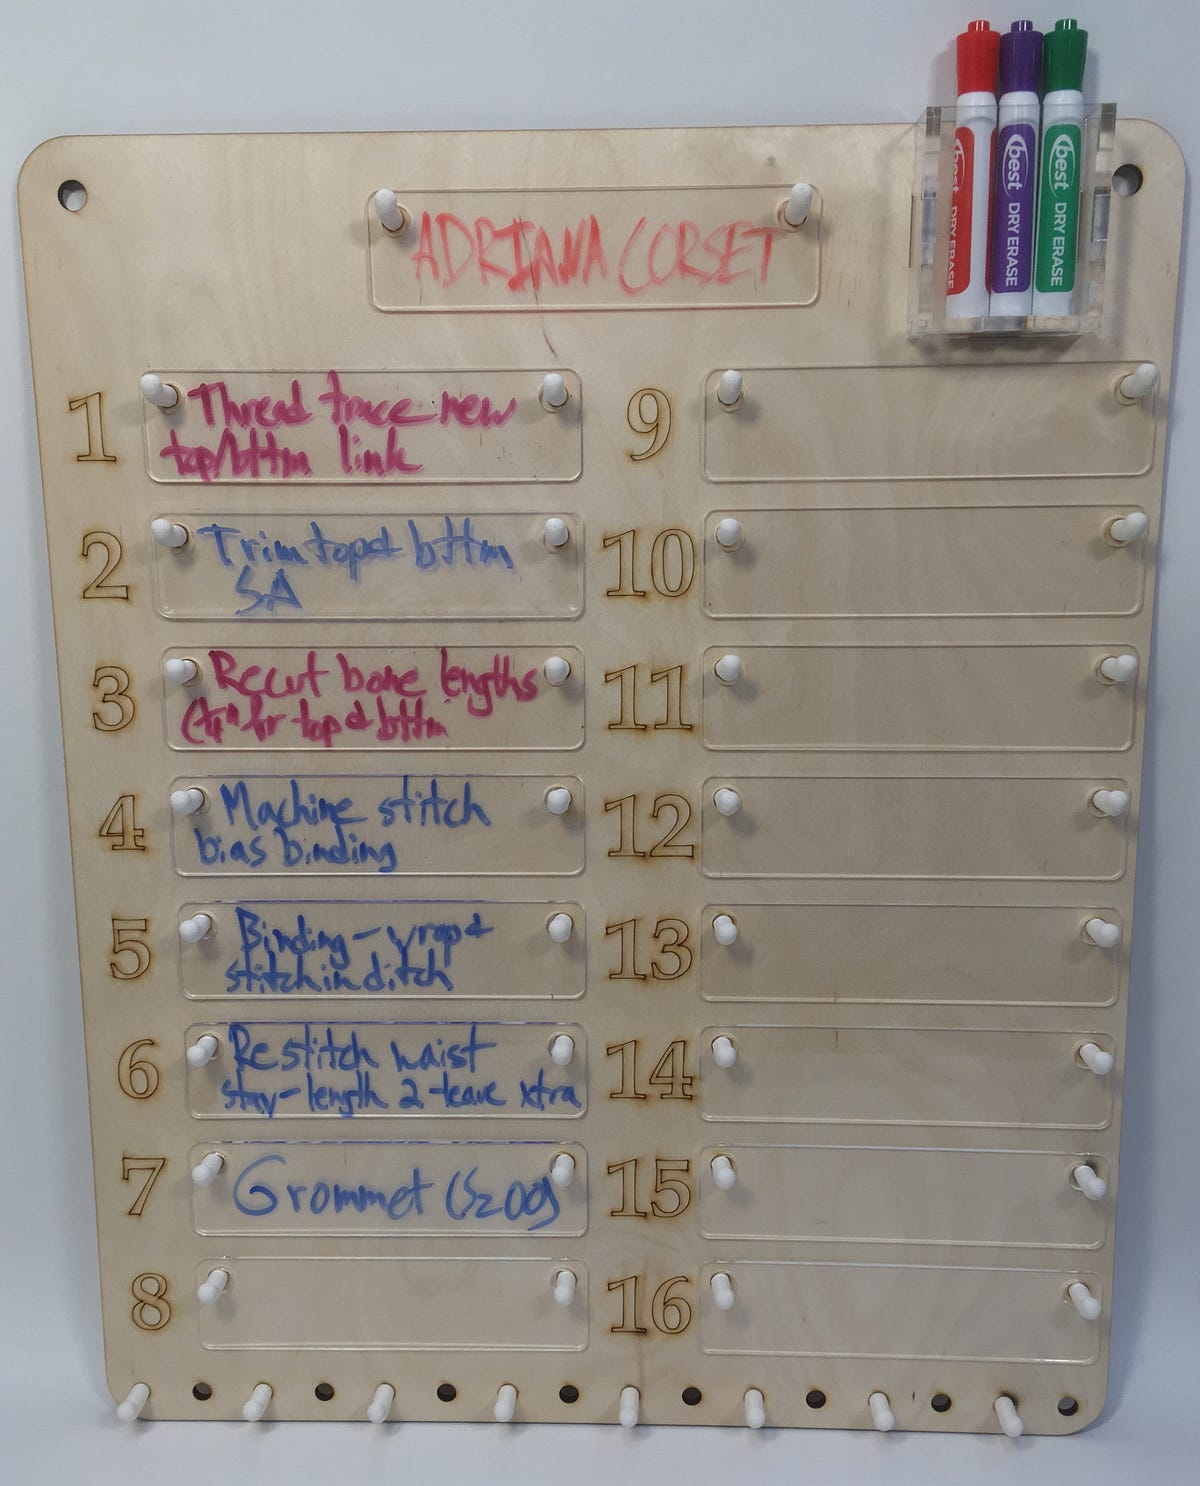 best DRY ERASE
best DRY ERASE
best DRY ERASE
ADRIANA CORSET
1
Thread trace new
top/bttm link
2
Trim top & bttm
SA
3
Recut bone lengths
(1/4" fr top & bttm
4
Machine stitch
bias binding
5
Binding - wrap &
stitch in ditch
6
Restitch waist
stay - length 2 - leave xtra
7
Grommet (S200)
8
9
10
11
12
13
14
15
16